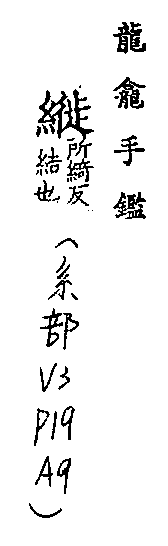 龍龕手鑑
縰所綺反結也(系部V3P19A9)